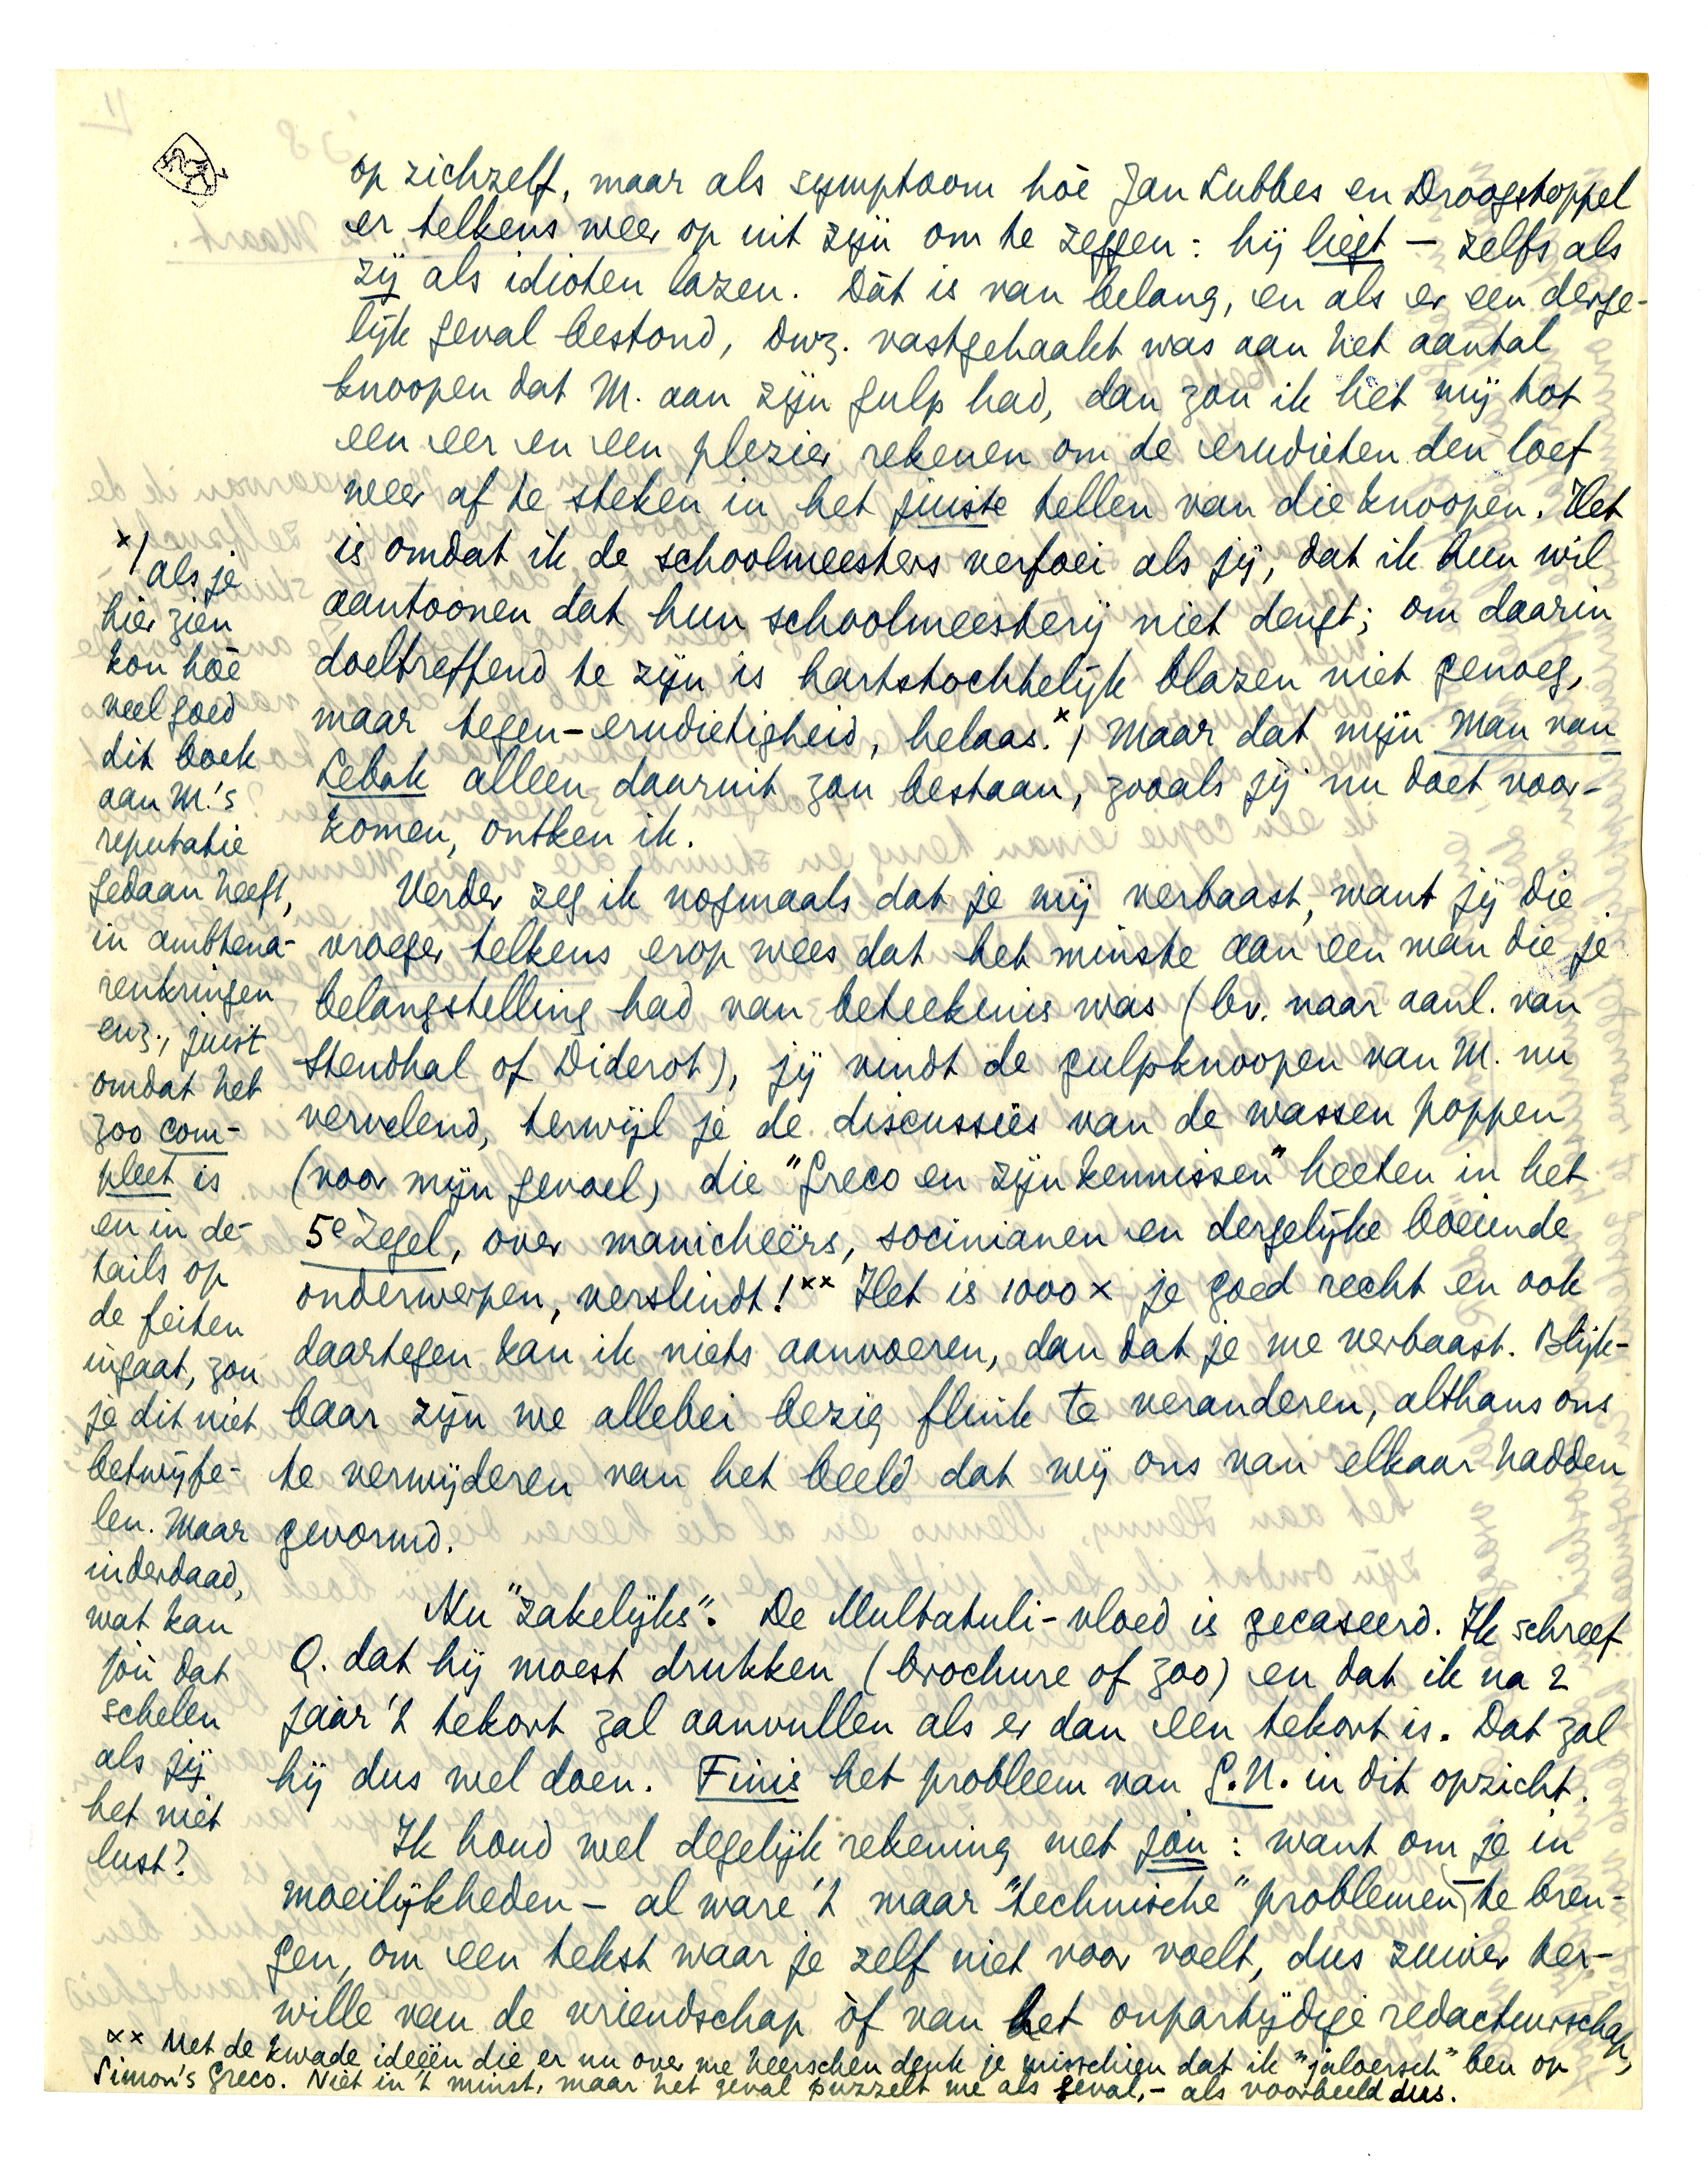 op zichzelf, maar als symptoom hòe Jan Lubbes en Droogstoppel
er telkens weer op uit zijn om te zeggen: hij liegt — zelfs als
zij als idioten lazen. Dàt is van belang, en als er een derge-
lijk geval bestond, dwz. vastgehaakt was aan het aantal
knoopen dat M. aan zijn gulp had, dan zou ik het mij tot
een eer en een plezier rekenen om de erudieten den loef
weer af te steken in het juiste tellen van die knoopen. Het
is omdat ik de schoolmeesters verfoei als jij, dat ik hun wil
aantoonen dat hun schoolmeesterij niet deugt; om daarin
doeltreffend te zijn is hartstochtelijk blazen niet genoeg,
maar tegen-erudietigheid, helaas.x) Maar dat mijn Man van
Lebak alleen daaruit zou bestaan, zooals jij nu doet voor-
komen, ontken ik.
Verder zeg ik nogmaals dat je mij verbaast, want jij die
vroeger telkens erop wees dat het minste aan een man die je
belangstelling had van beteekenis was (bv. naar aanl. van
Stendhal of Diderot), jij vindt de gulpknoopen van M. nu
vervelend, terwijl je de discussies van de wassen poppen
(voor mijn gevoel) die "Greco en zijn kennissen" heeten in het
5e Zegel, over manicheërs, socinianen en dergelijke boeiende
onderwerpen, verslindt!xx Het is 1000 x je goed recht en ook
daartegen kan ik niets aanvoeren, dan dat je me verbaast. Blijk-
baar zijn we allebei bezig flink te veranderen, althans ons
te verwijderen van het beeld dat wij ons van elkaar hadden
gevormd.
Nu "zakelijks". De Multatuli-vloed is gecaseerd. Ik schreef
Q. dat hij moest drukken (brochure of zoo) en dat ik na 2
jaar 't tekort zal aanvullen als er dan een tekort is. Dat zal
hij dus wel doen. Finis het probleem van G.N. in dit opzicht.
Ik houd wel degelijk rekening met jou: want om je in
moeilijkheden – al ware 't maar "technische" problemen – te bren-
gen, om een tekst waar je zelf niet voor voelt, dus zuiver ter-
wille van de vriendschap òf van het onpartijdige redacteurschap,
x) als je
hier zien
kon hòe
veel goed
dit boek
aan M.'s
reputatie
gedaan heeft,
in ambtena-
renkringen
enz., juist
omdat het
zoo com-
pleet is
en in de-
tails op
de feiten
ingaat, zou
je dit niet
betwijfe-
len. Maar
inderdaad,
wat kan
jou dat
schelen
als jij
het niet
lust?
xx Met de kwade ideeën die er nu over me heerschen denk je misschien dat ik "jaloersch" ben op
Simon's Greco. Niet in 't minst, maar het geval puzzelt me als geval, – als voorbeeld dus.